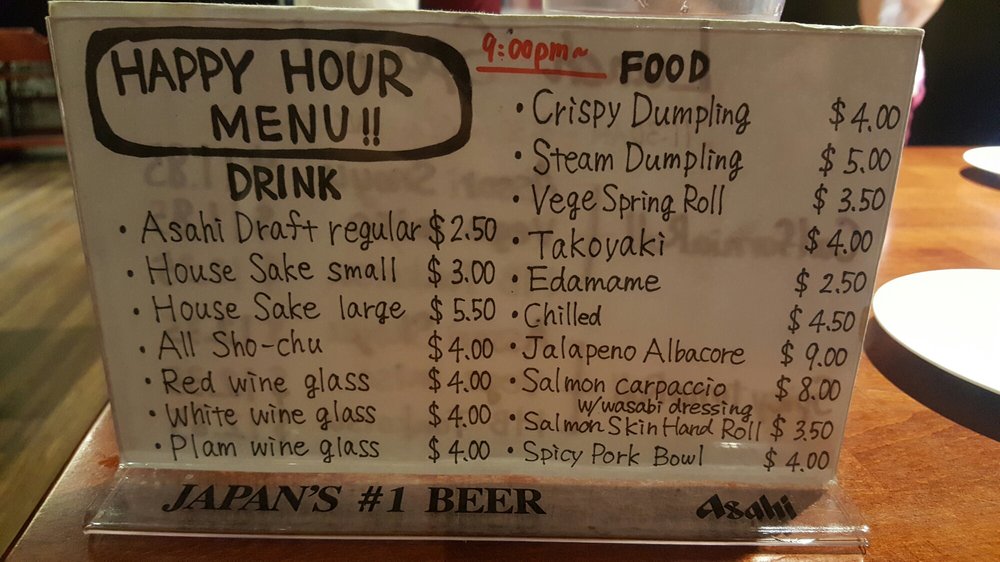 HAPPY HOUR
MENU!!
DRINK
• Asahi Draft regular $2.50
• House Sake small $3.00
• House Sake large $5.50
• All Sho-chu $4.00
• Red wine glass $4.00
• White wine glass $4.00
• Plam wine glass $4.00
9:00pm~ FOOD
• Crispy Dumpling $4.00
• Steam Dumpling $5.00
• Vege Spring Roll $3.50
• Takoyaki $4.00
• Edamame $2.50
• Chilled $4.50
• Jalapeno Albacore $9.00
• Salmon carpaccio $8.00
w/wasabi dressing
• Salmon Skin Hand Roll $3.50
• Spicy Pork Bowl $4.00
JAPAN'S #1 BEER Asahi